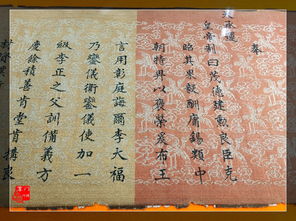 奉
天承運
皇帝制曰茂德建勳良臣克
昭其果毅酬庸錫類中
朝特典以褒榮爰布王
言用彰庭誨爾李大福
乃鑾儀衛鑾儀使加一
級李正之父訓備義方
慶徐積善肯堂肯搆良